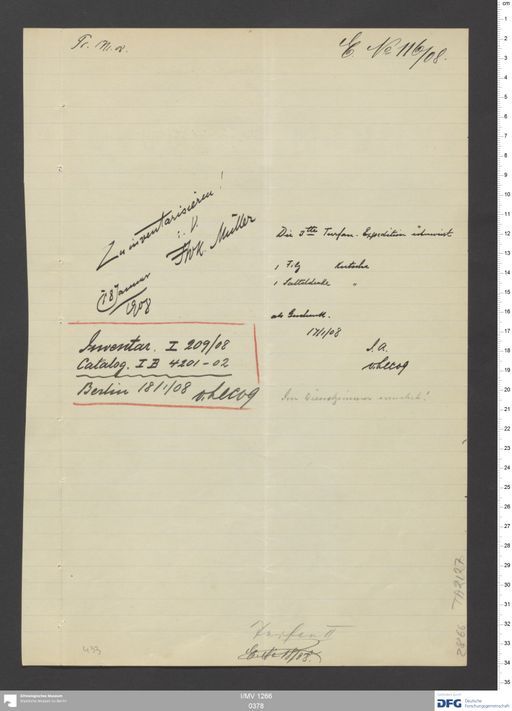 E. No 116/08.
Zu inventarisieren!
i. V.
FWK. Müller
18 Januar
1908
Die 3te Turfan-Expedition überweist
1 Filz Kutscha
1 Satteldecke "
als Geschenk.
17/1/08
I. A.
v. Lecoq
Inventar. I 209/08
Catalog. I B 4201-02
Berlin 18/1/08 v. Lecoq
Im Dienstzimmer
TA 2127
2866
433
Turfan II
I/MV 1266
0378
Ethnologisches Museum
Staatliche Museen zu Berlin
DFG Deutsche
Forschungsgemeinschaft
cm
1
2
3
4
5
6
7
8
9
10
11
12
13
14
15
16
17
18
19
20
21
22
23
24
25
26
27
28
29
30
31
32
33
34
35